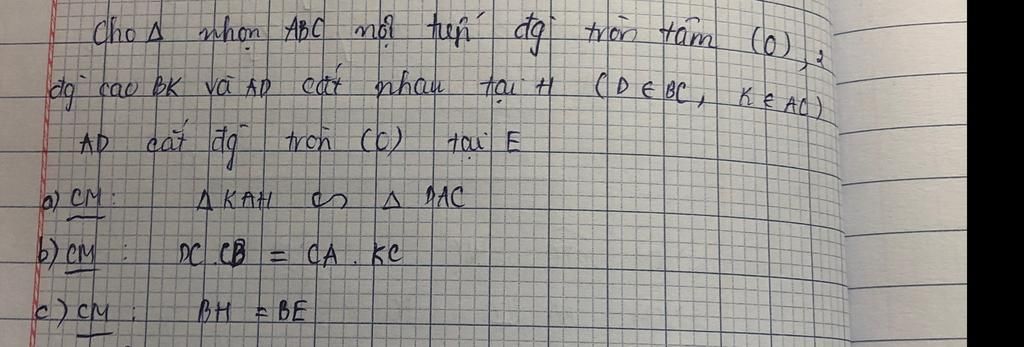 Cho Δ nhọn ABC nội tiếp đg tròn tâm (O), 2
đg cao BK và AD cắt nhau tại H (D ∈ BC, K ∈ AC)
AD cắt đg tròn (O) tại E
a) CM: Δ KAH ∽ Δ DAC
b) CM: DC.CB = CA.KC
c) CM: BH = BE